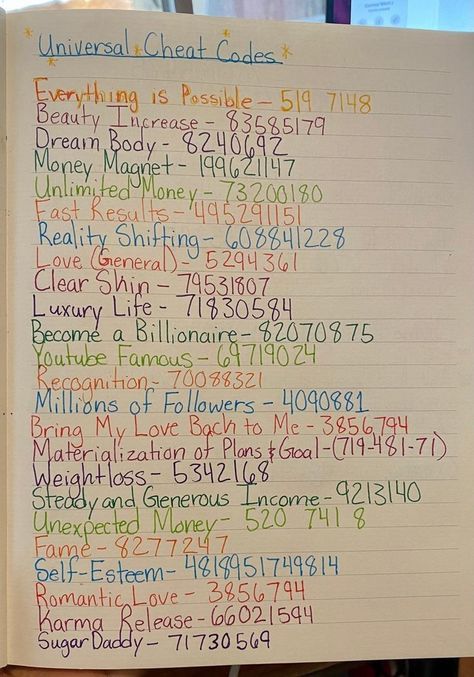 Universal Cheat Codes
Everything is Possible - 519 7148
Beauty Increase - 83585179
Dream Body - 8240692
Money Magnet - 199621147
Unlimited Money - 73200180
Fast Results - 495291151
Reality Shifting - 608841228
Love (General) - 5294361
Clear Skin - 79531807
Luxury Life - 71830584
Become a Billionaire - 82070875
Youtube Famous - 69719024
Recognition - 70088321
Millions of Followers - 4090881
Bring My Love Back to Me - 3856794
Materialization of Plans & Goal - (719-481-71)
Weightloss - 5342168
Steady and Generous Income - 9213140
Unexpected Money - 520 741 8
Fame - 8277247
Self-Esteem - 4818951749814
Romantic Love - 3856794
Karma Release - 66021594
Sugar Daddy - 71730569